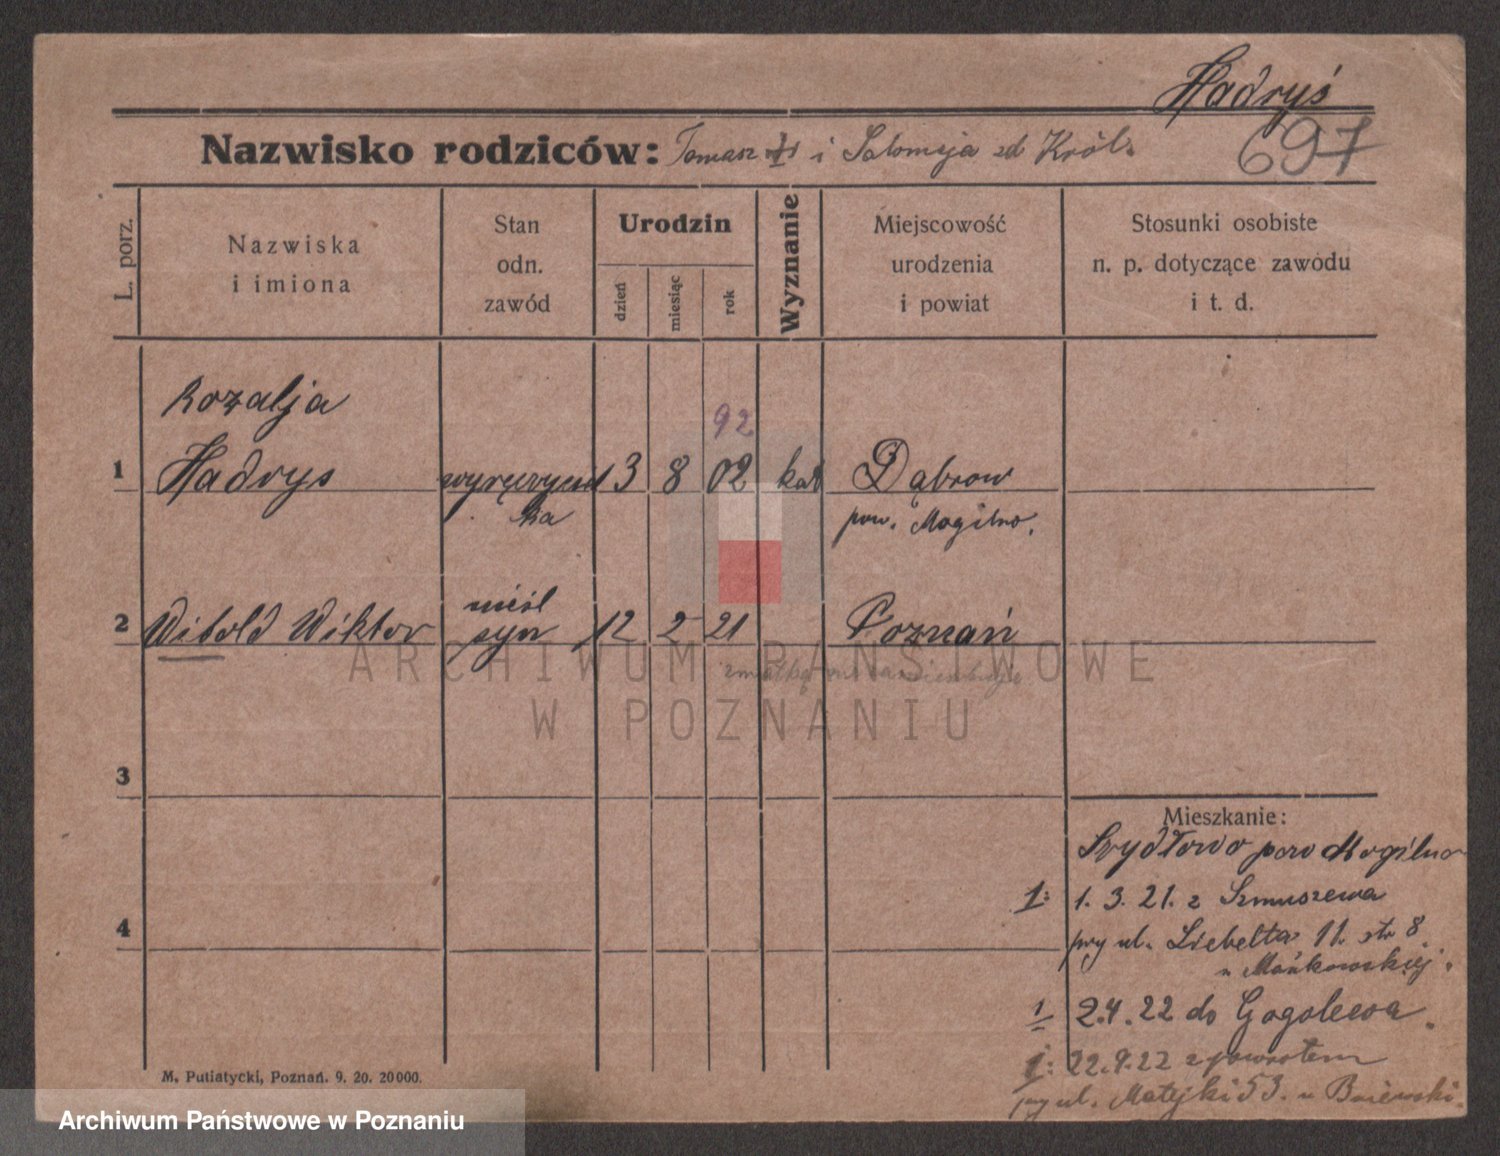 Hadryś
697
Nazwisko rodziców: Tomasz i Salomeja zd Król.
L. porz.
Nazwiska
i imiona
Stan
odn.
zawód
Urodzin
dzień
miesiąc
rok
Wyznanie
Miejscowość
urodzenia
i powiat
Stosunki osobiste
n. p. dotyczące zawodu
i t. d.
Rozalja
92
1 Hadrys 3 8 02 kat Dąbrow
ka pow. Mogilno.
nieśl
2 Witold Wiktor syn 12 2 21 Poznań
ARCHIWUM PAŃSTWOWE
W POZNANIU
3
Mieszkanie:
pow Mogilno
1: 1. 3. 21. z Szmuszewa
4
przy ul. Liebelta 11. str 8
u Mańkowskiej.
1 2.4.22 do Gogolewa.
1: 22.9.22 z powrotem
przy ul. Matejki 53. u
M. Putiatycki, Poznań. 9. 20. 20000.
Archiwum Państwowe w Poznaniu